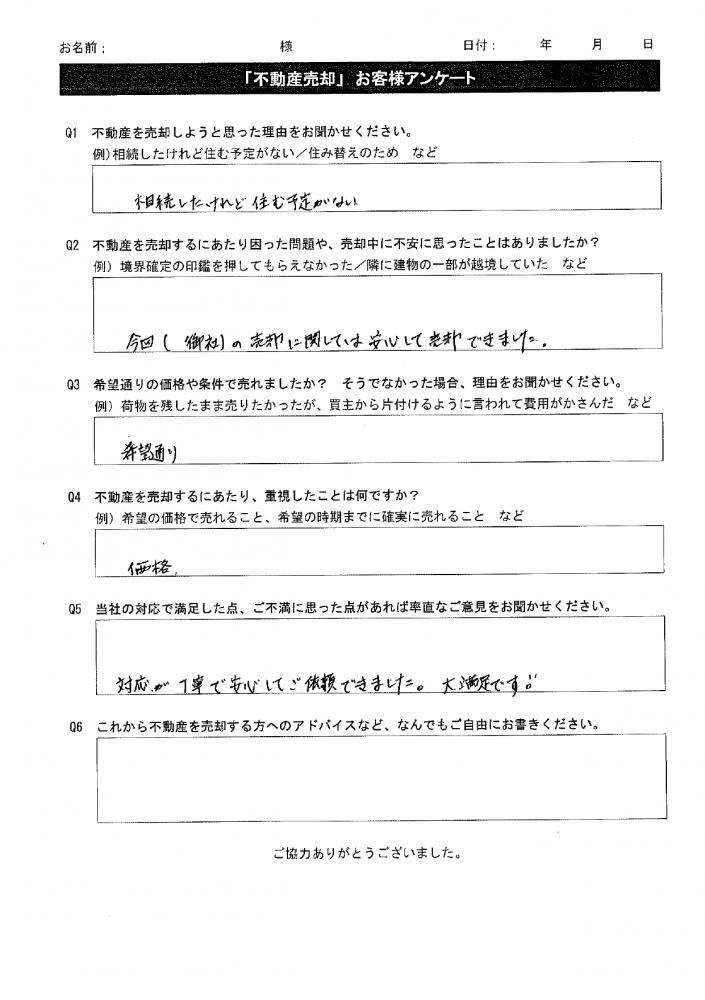 お名前： 様 日付： 年 月 日
「不動産売却」お客様アンケート
Q1 不動産を売却しようと思った理由をお聞かせください。
例)相続したけれど住む予定がない／住み替えのため など
相続したけれど住む予定がない
Q2 不動産を売却するにあたり困った問題や、売却中に不安に思ったことはありましたか？
例）境界確定の印鑑を押してもらえなかった／隣に建物の一部が越境していた など
今回( 御社)の売却に関しては安心して売却できました。
Q3 希望通りの価格や条件で売れましたか？ そうでなかった場合、理由をお聞かせください。
例）荷物を残したまま売りたかったが、買主から片付けるように言われて費用がかさんだ など
希望通り
Q4 不動産を売却するにあたり、重視したことは何ですか？
例）希望の価格で売れること、希望の時期までに確実に売れること など
価格、
Q5 当社の対応で満足した点、ご不満に思った点があれば率直なご意見をお聞かせください。
対応が丁寧で安心してご依頼できました。大満足です!!
Q6 これから不動産を売却する方へのアドバイスなど、なんでもご自由にお書きください。
ご協力ありがとうございました。